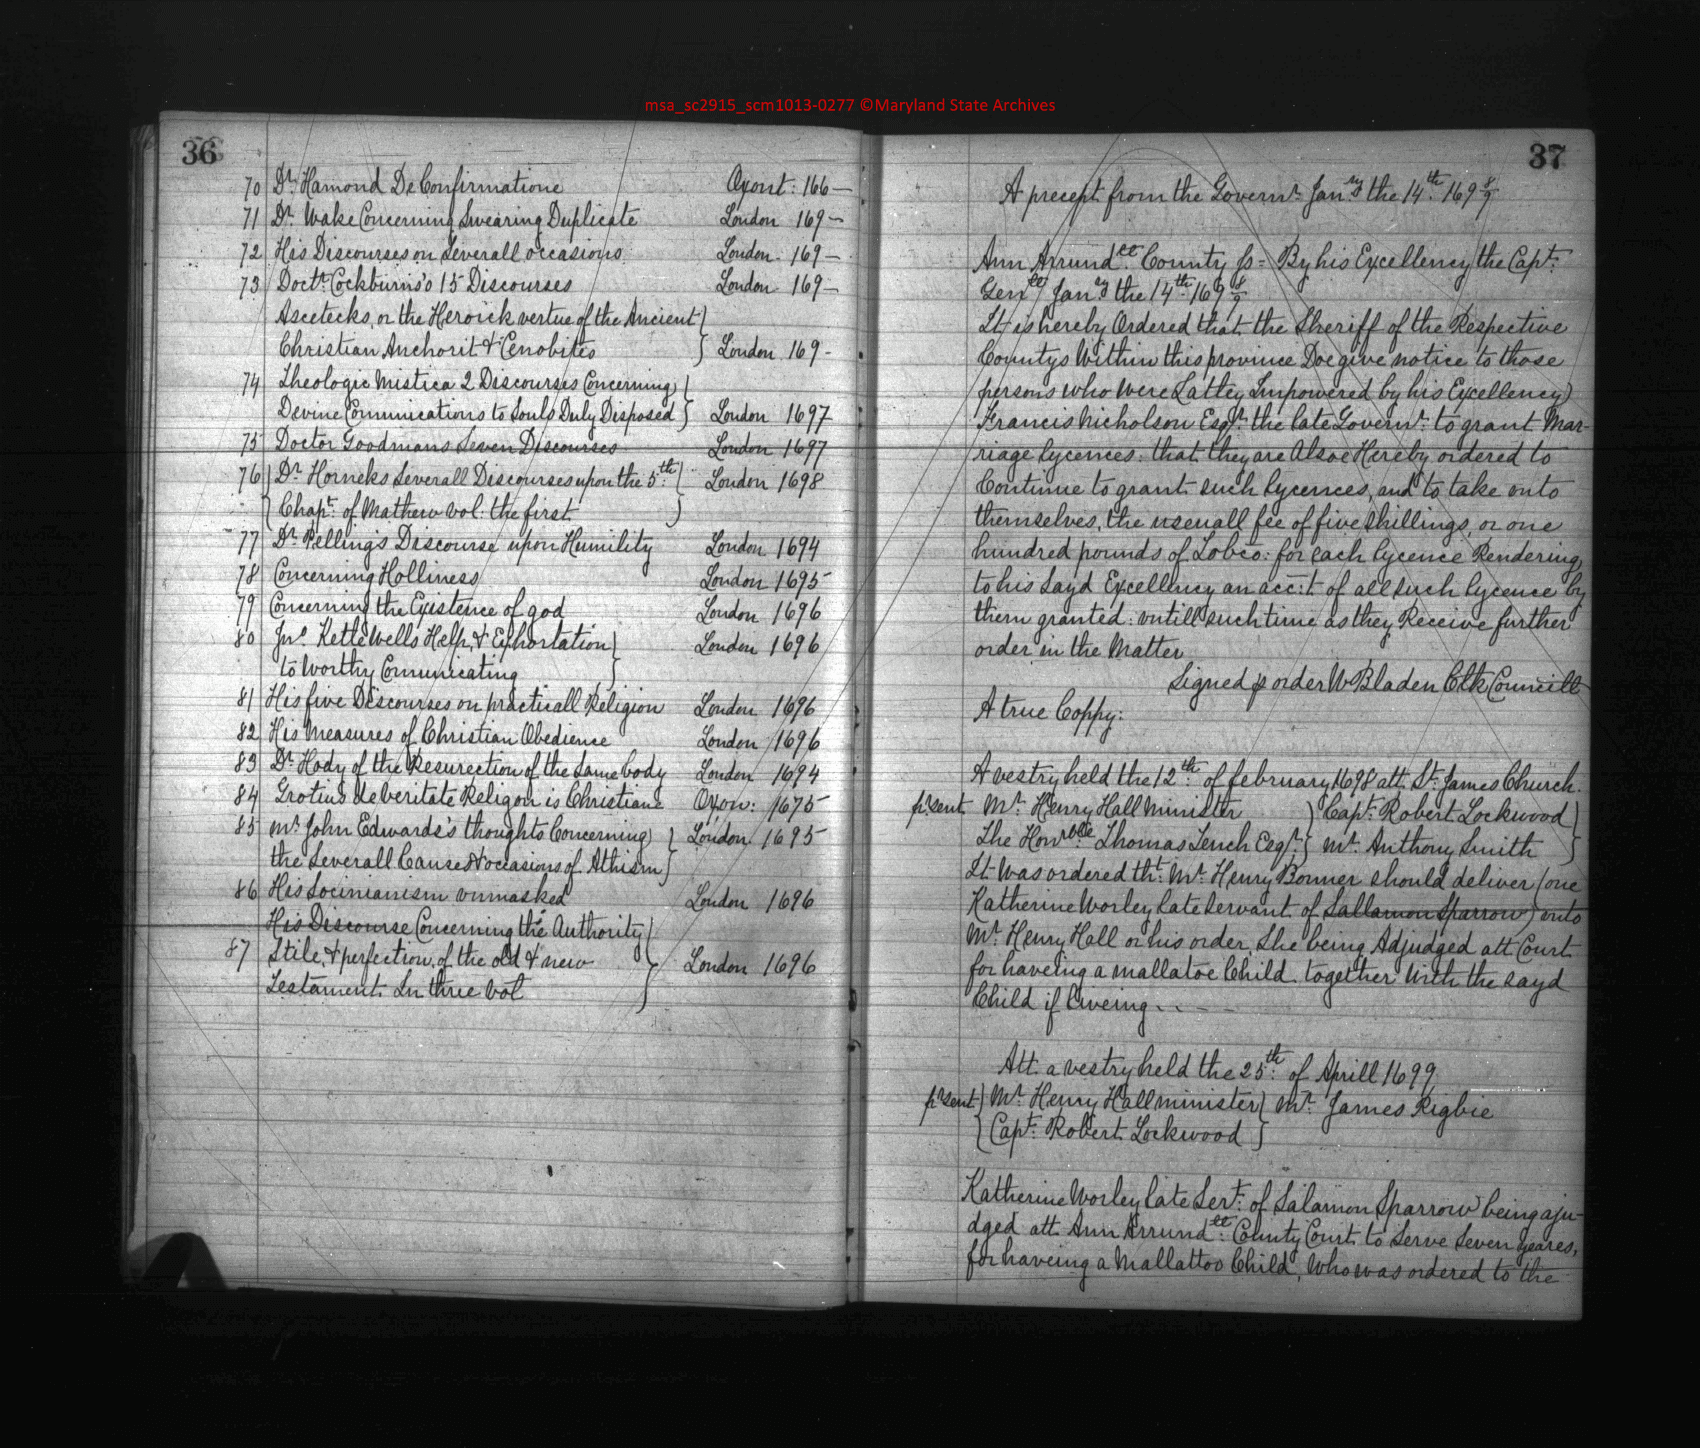 msa_sc2915_scm1013-0277 ©Maryland State Archives
36
70 Dr. Hamond De Confirmatione Oxont: 166—
71 Dr. Wake Concerning Swearing Duplicate London 169—
72 His Discourses on Severall occasions London 169—
73 Doctr. Cockburns's 15 Discourses London 169—
Ascetecks, or the Heroick vertue of the Ancient
Christian Anchorit & Cenobites London 169-
74 Theologie Mistica 2 Discourses Concerning
Devine Comunications to Souls Duly Disposed London 1697
75 Doctor Goodmans Seven Discourses London 1697
76 Dr. Horneks Severall Discourses upon the 5th London 1698
Chapt. of Mathew vol: the first
77 Dr. Pellings Discourse upon Humility London 1694
78 Concerning Holliness London 1695
79 Concerning the Existence of god London 1696
80 Jno. Kettlewells Help, & Exhortation London 1696
to Worthy Comunicating
81 His five Discourses on practicall Religion London 1696
82 His Measures of Christian Obedience London 1696
83 Dr. Hody of the Resurection of the Same body London 1694
84 Grotius de veritate Religon is Christiane Oxon: 1675
85 Mr. John Edwards's thoughts Concerning London 1695
the Severall Causes & occasions of Athism
86 His Socinianism unmasked London 1696
His Discourse Concerning the Authority
87 Stile, & perfection, of the old & new London 1696
Testament In three vol
37
A precept from the Governr. Janry the 14th 169 8/9
Ann Arrundll County ss= By his Excellency the Capt.
Genll Janry the 14th 169 8/9
It is hereby Ordered that the Sheriff of the Respective
Countys Within this province Doe give notice to those
persons who were Lattley Impowered by his Excellency
Francis Nicholson Esqr. the late Governr. to grant Mar-
riage lycences: that they are Alsoe Hereby ordered to
Continue to grant such lycences, and to take onto
themselves, the usenall fee of five shillings, or one
hundred pounds of Tobco: for each lycence Rendering
to his Sayd Excellency an acct. of all such lycence by
them granted: untill such time as they Receive further
order in the Matter
Signed p order W Bladen Clk Councill
A true Coppy:
A vestry held the 12th of february 1698 att St. James Church.
prsent Mr. Henry Hall Minister Capt. Robert Lockwood
The Honrble Thomas Tench Esqr. Mr. Anthony Smith
It Was ordered tht. Mr. Henry Bonner should deliver (one
Katherine Worley late Servant of Sallamon Sparrow) onto
Mr. Henry Hall or his order, She being Adjudged att Court
for haveing a mallatoe Child together With the sayd
Child if liveing - - - -
Att a vestry held the 25th of Aprill 1699
prsent Mr. Henry Hall minister Mr. James Rigbie
Capt. Robert Lockwood
Katherine Worley late Sert. of Salamon Sparrow being aju-
dged att Ann Arrundll. County Court to Serve Seven yeares,
for haveing a Mallattoo Child, Who was ordered to the